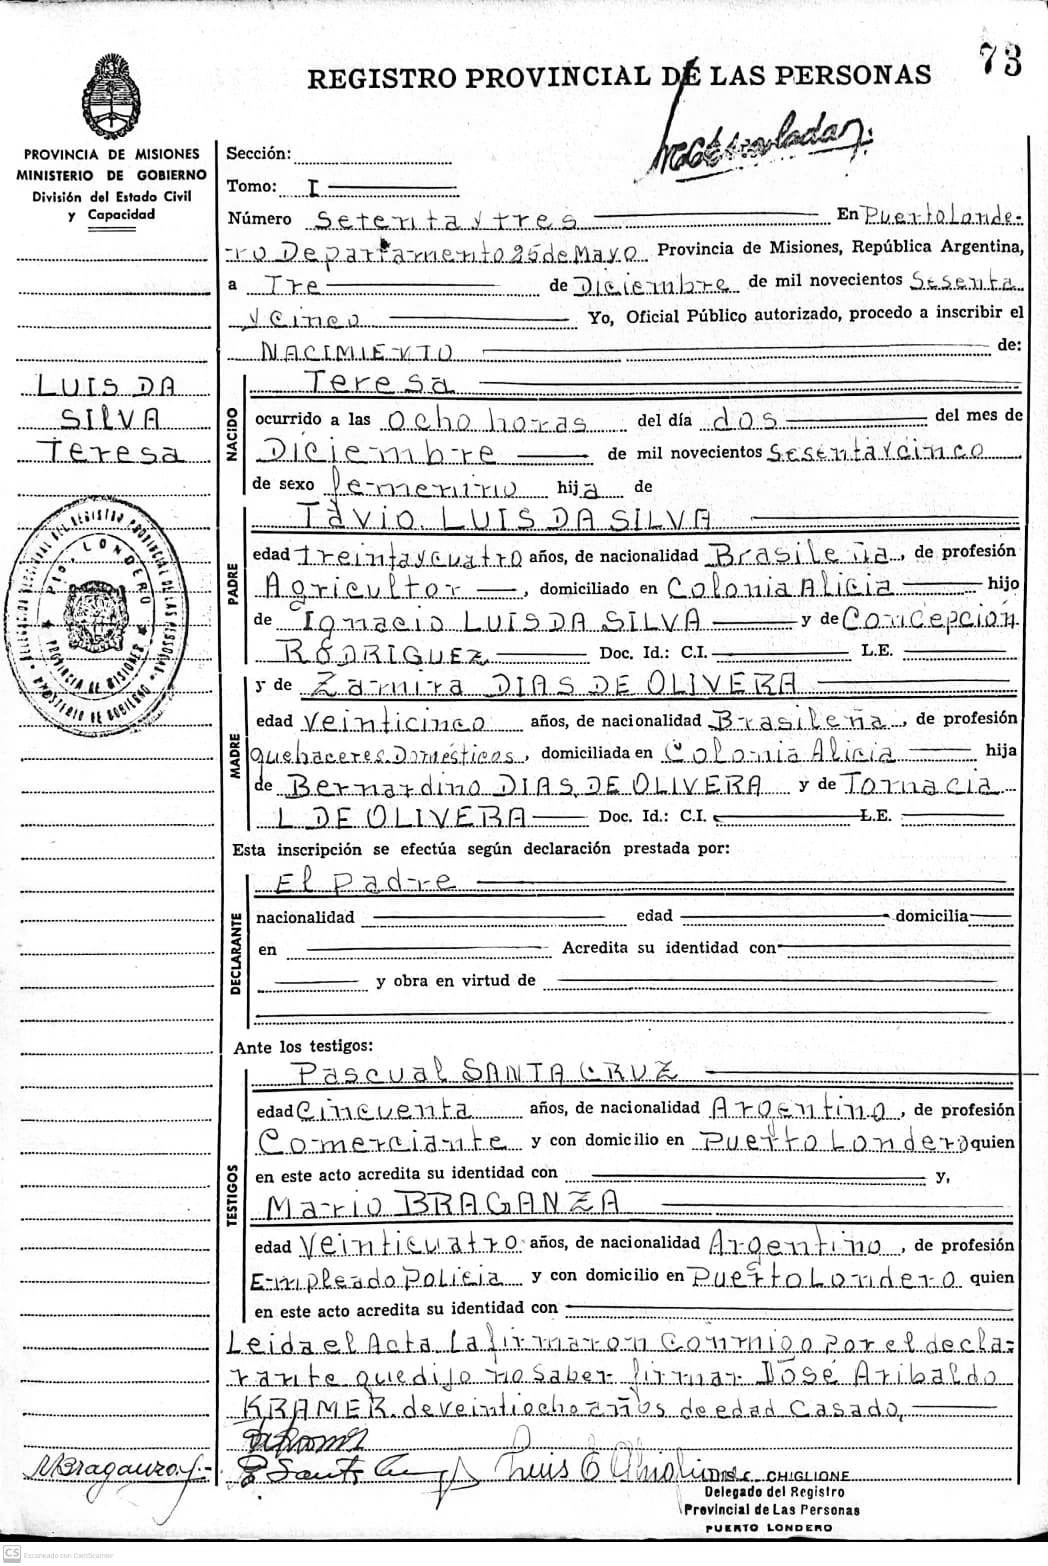 73
REGISTRO PROVINCIAL DE LAS PERSONAS
PROVINCIA DE MISIONES
MINISTERIO DE GOBIERNO
División del Estado Civil
y Capacidad
Sección:
Tomo: I
Número Setenta y tres En Puerto Londe-
ro Departamento 25 de Mayo Provincia de Misiones, República Argentina,
a Tre de Diciembre de mil novecientos Sesenta
y cinco Yo, Oficial Público autorizado, procedo a inscribir el
NACIMIENTO de:
LUIS DA
SILVA
Teresa
NACIDO
Teresa
ocurrido a las ocho horas del día dos del mes de
Diciembre de mil novecientos Sesenta y cinco
de sexo femenino hija de
PADRE
Tavio LUIS DA SILVA
edad treinta y cuatro años, de nacionalidad Brasileña, de profesión
Agricultor, domiciliado en Colonia Alicia hijo
de Ignacio LUIS DA SILVA y de Concepción
RODRIGUEZ Doc. Id.: C.I. L.E.
MADRE
y de Zamira DIAS DE OLIVERA
edad veinticinco años, de nacionalidad Brasileña, de profesión
quehaceres Domésticos, domiciliada en Colonia Alicia hija
de Bernardino DIAS DE OLIVERA y de Tornacia
L DE OLIVERA Doc. Id.: C.I. L.E.
Esta inscripción se efectúa según declaración prestada por:
DECLARANTE
El padre
nacionalidad edad domicilia
en Acredita su identidad con
y obra en virtud de
Ante los testigos:
TESTIGOS
Pascual SANTA CRUZ
edad Cincuenta años, de nacionalidad Argentino, de profesión
Comerciante y con domicilio en Puerto Londero quien
en este acto acredita su identidad con y,
Mario BRAGANZA
edad Veinticuatro años, de nacionalidad Argentino, de profesión
Empleado Policia y con domicilio en Puerto Londero quien
en este acto acredita su identidad con
Leida el Acta La firmaron Conmigo por el decla=
rante que dijo no saber firmar José Aribaldo
KRAMER de veintiocho años de edad Casado,
MBraganza
P Santa Cruz Luis C Chiglione
LUIS C. CHIGLIONE
Delegado del Registro
Provincial de Las Personas
PUERTO LONDERO
CS Escaneado con CamScanner